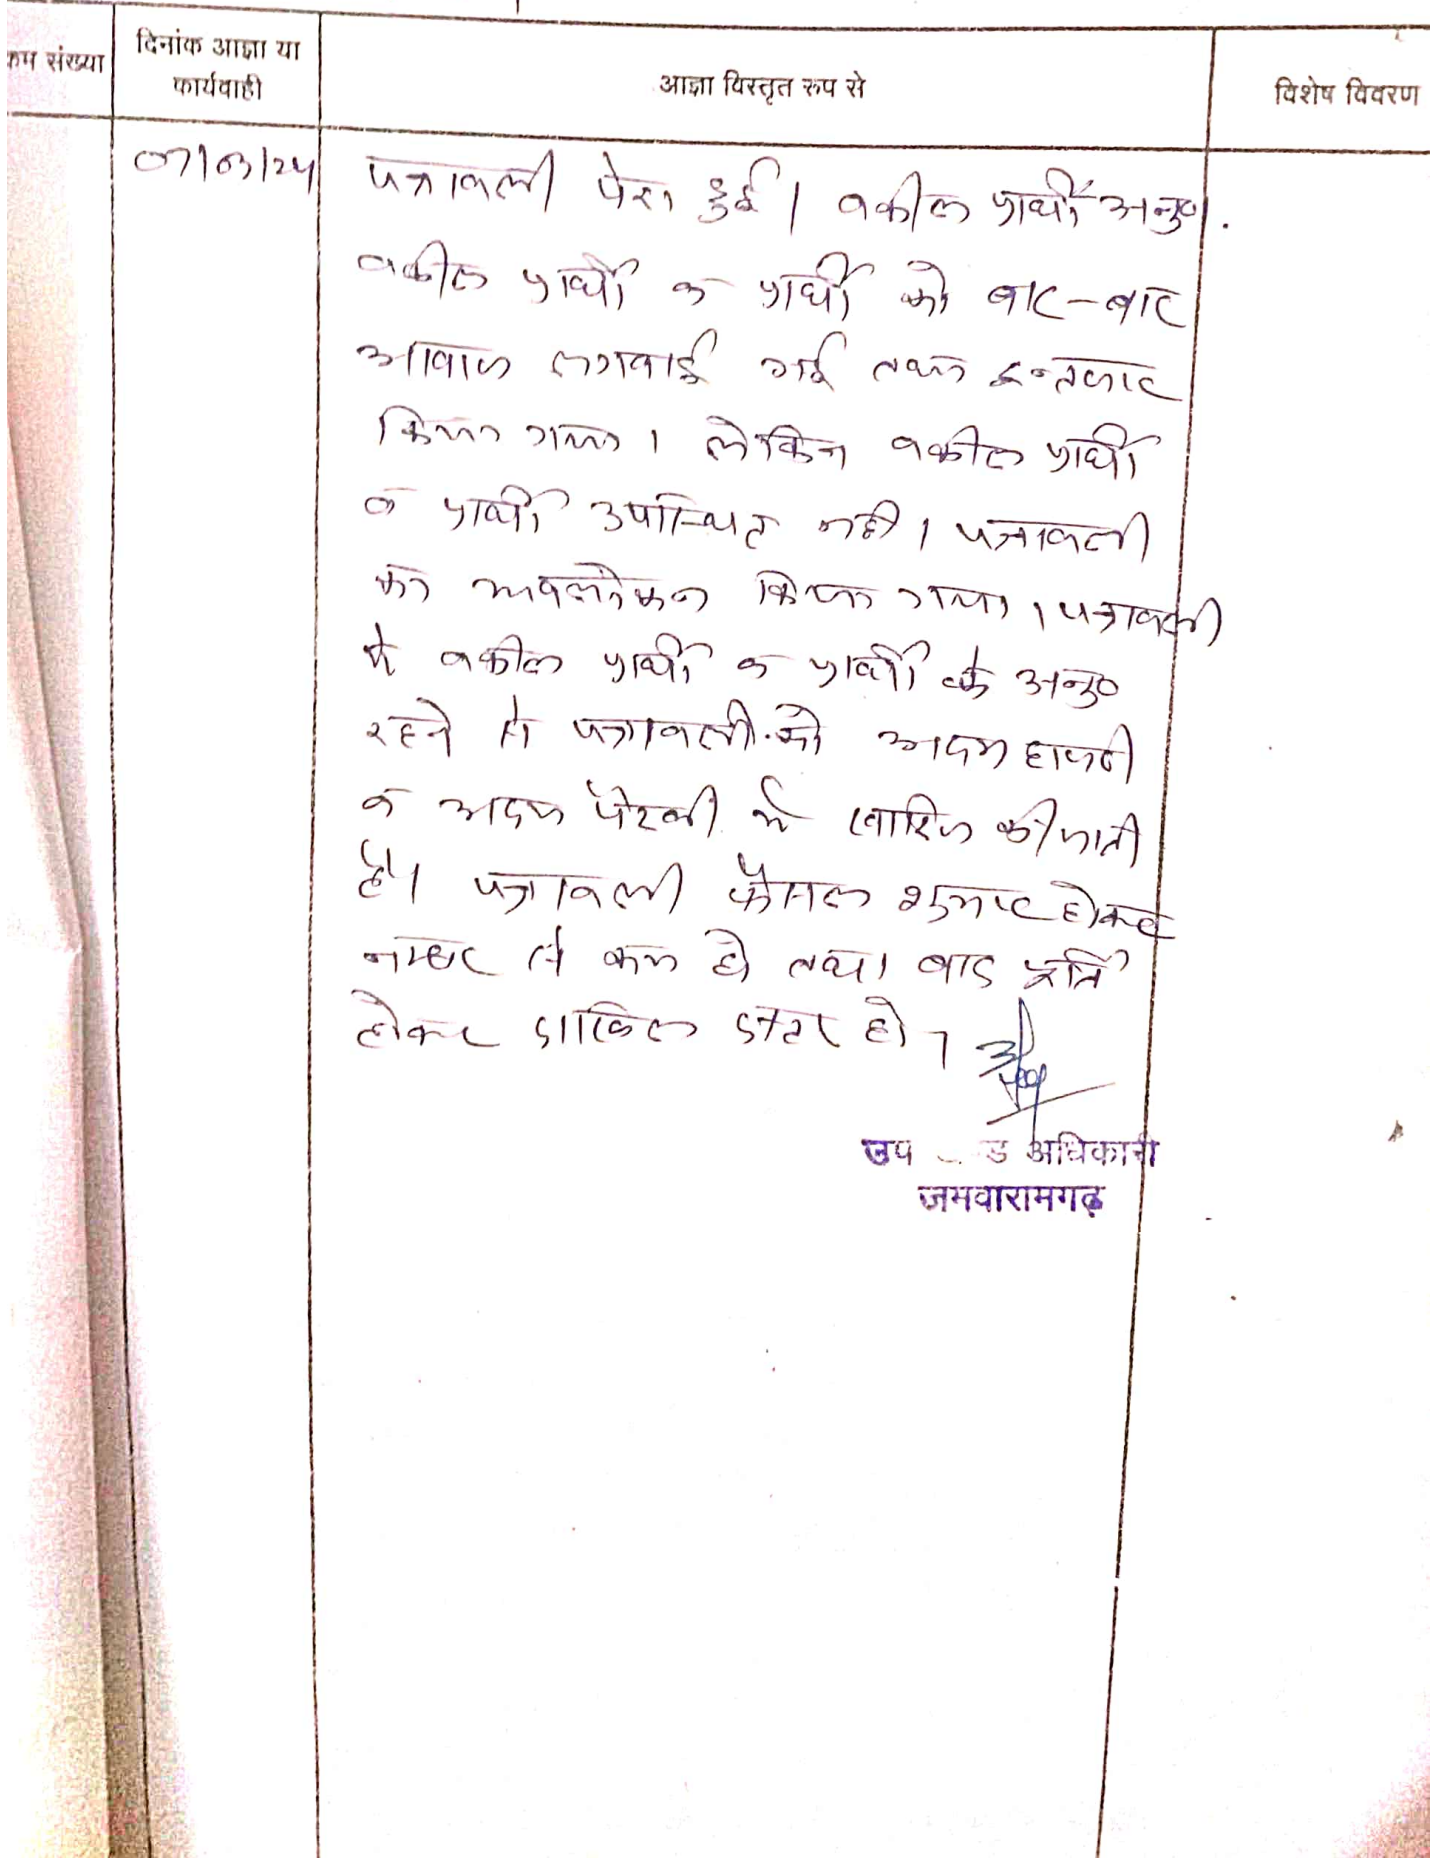 क्रम संख्या
दिनांक आज्ञा या
कार्यवाही
आज्ञा विस्तृत रुप से
विशेष विवरण
07/03/24
पत्रावली पेश हुई। वकील प्रार्थी अनु०।
वकील प्रार्थी व प्रार्थी को बार-बार
आवाज लगवाई गई तथा इन्तजार
किया गया। लेकिन वकील प्रार्थी
व प्रार्थी उपस्थित नही। पत्रावली
का अवलोकन किया गया। पत्रावली
मे वकील प्रार्थी व प्रार्थी के अनु०
रहने से पत्रावली को अदम हाजरी
व अदम पैरवी मे खारिज की जाती
है। पत्रावली फैसल शुमार होकर
नम्बर से कम हो तथा बाद
होकर दाखिल दफ्तर हो।
उप ड अधिकारी
जमवारामगढ़